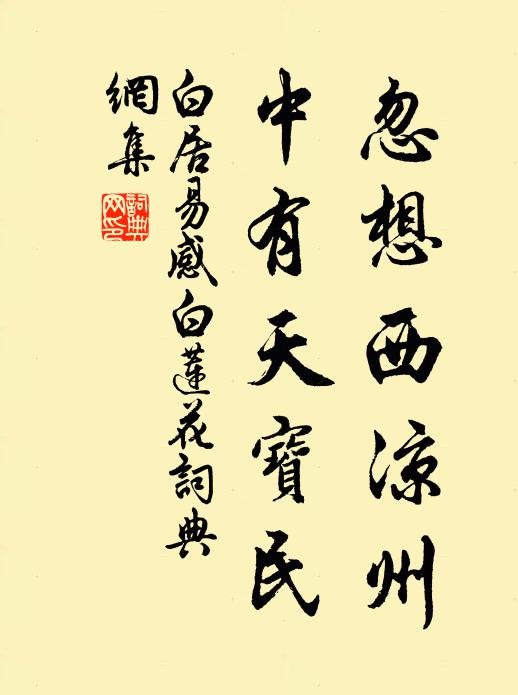 忽想西涼州
中有天寶民
白居易感白蓮花詞典
網集
詞典
网印